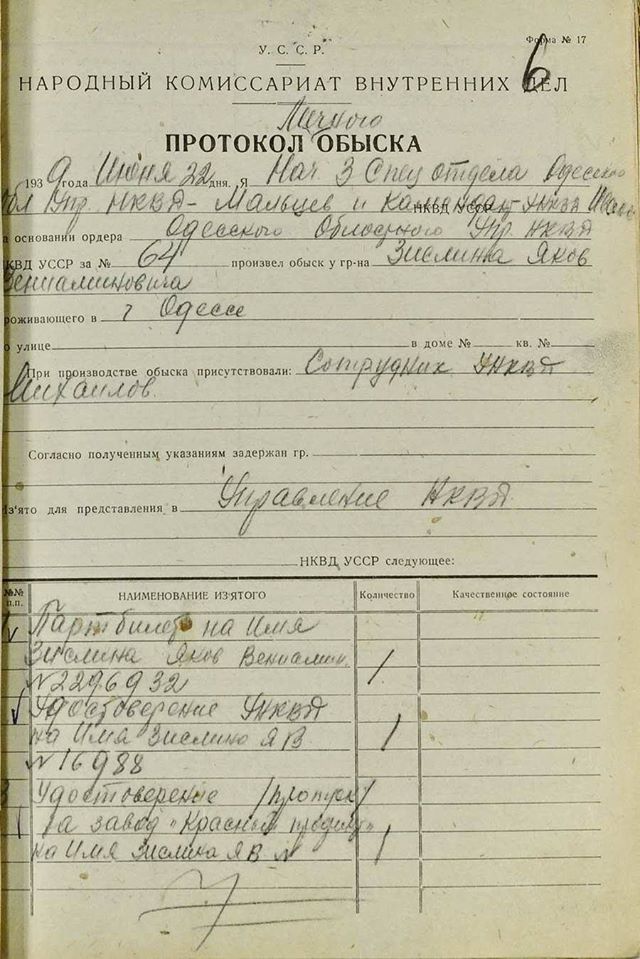 Форма № 17
6
У. С. С. Р.
НАРОДНЫЙ КОМИССАРИАТ ВНУТРЕННИХ ДЕЛ
Личного
ПРОТОКОЛ ОБЫСКА
1939 года Июня 22 дня. Я Нач 3 Спец отдела Одесской
Обл Упр. НКВД - Мальцев и Комендант УНКВД НКВД УССР
а основании ордера Одесского Областного Упр. НКВД
КВД УССР за № 64 произвел обыск у гр-на Зислина Яков
Вениаминовича
роживающего в г Одессе
о улице в доме № кв. №
При производстве обыска присутствовали: Сотрудник УНКВД
Михайлов.
Согласно полученным указаниям задержан гр.
Из'ято для представления в Управление НКВД
НКВД УССР следующее:
№№ п.п. НАИМЕНОВАНИЕ ИЗ'ЯТОГО Количество Качественное состояние
Партбилет на Имя
Зислина Яков Вениамин.
№ 2296932 1
Удостоверение УНКВД
на Имя Зислино Я В 1
№ 16988
3 Удостоверение /пропуск/
на завод „Красный
на Имя Зислина Я В № 1